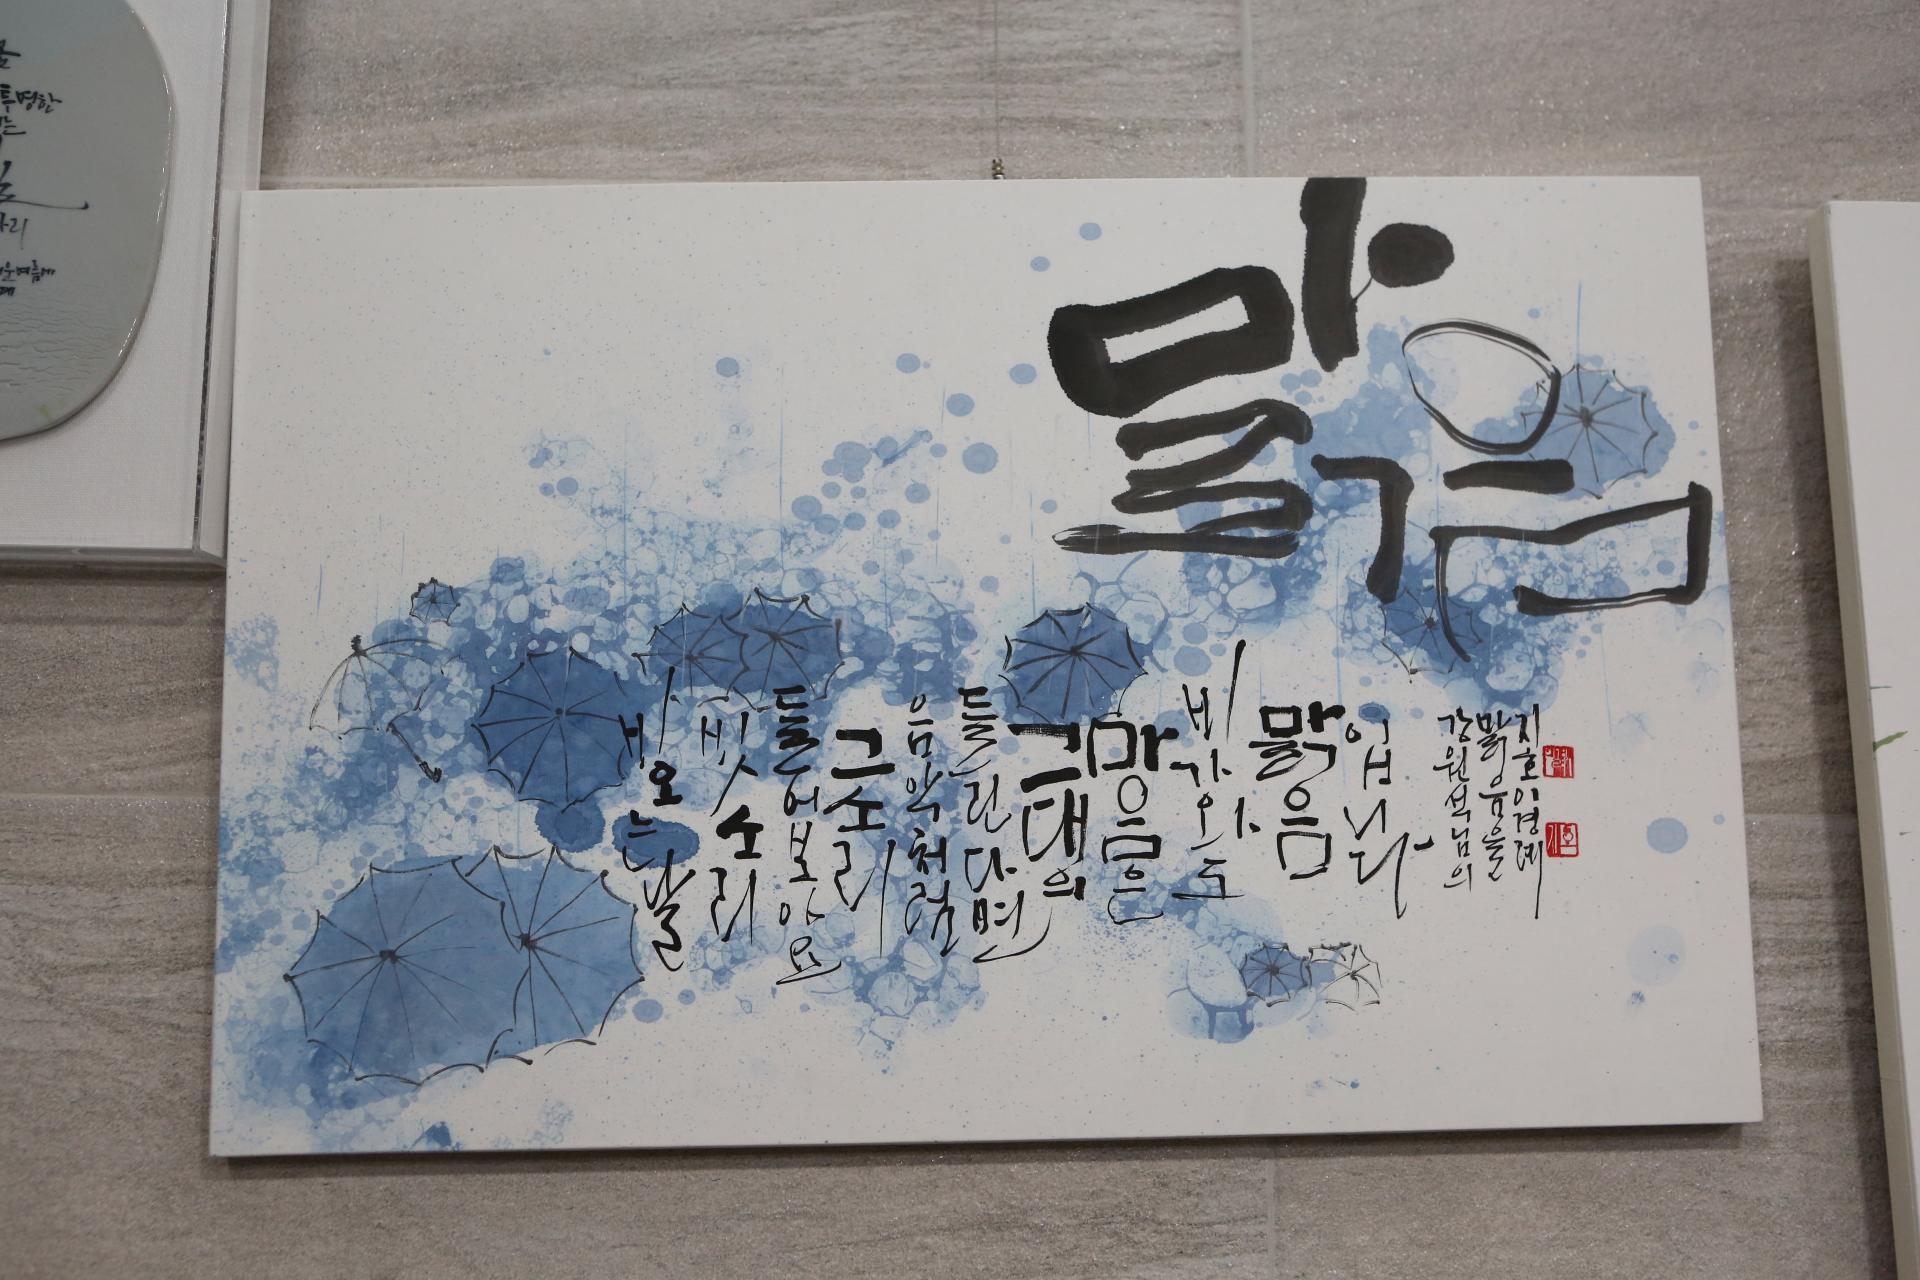 맑음
비오는날
빗소리
들어보아요
그소리
음악처럼
들린다면
그대의
마음은
비가와도
맑음
입니다
강원석님의
맑음을
지호이경례
투명한